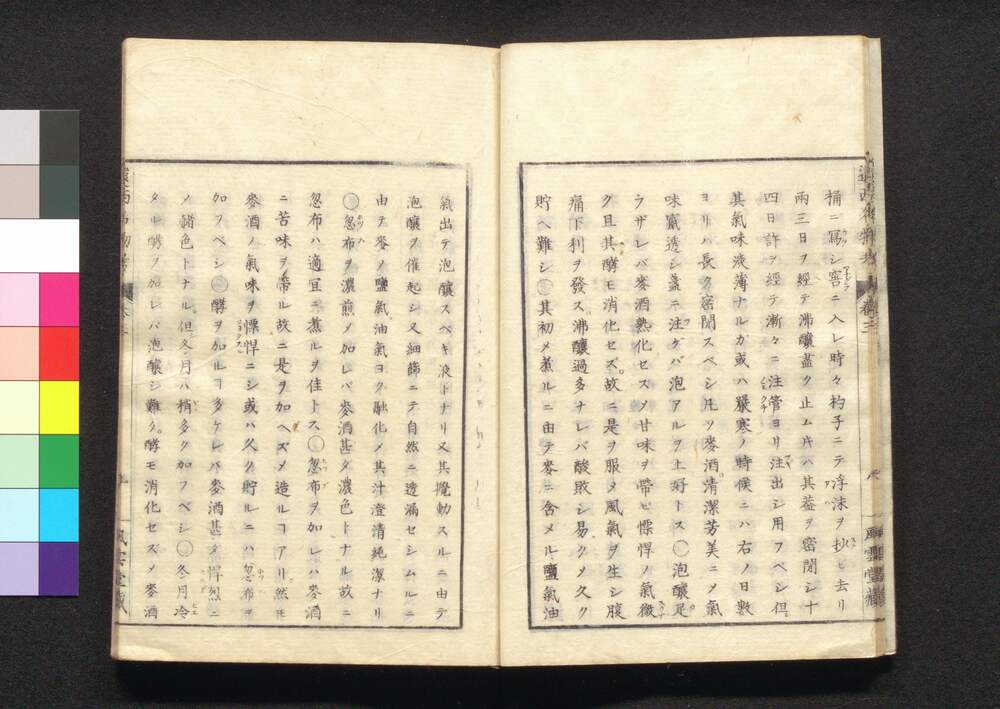 桶ニ寫シ窖ニ入レ時々杓子ニテ浮沫ヲ抄ヒ去リ
兩三日ヲ經テ沸釀盡ク止ム片ハ其蓋ヲ密閉シ十
四日許ヲ經テ漸々ニ注管ヨリ注出シ用フベシ但
其氣味淡薄ナルカ或ハ嚴寒ノ時候ニハ右ノ日數
ヨリハ長ク密閉スベシ凡ソ麥酒淸潔芳美ニメ氣
味竄透シ盞ニ注ゲバ泡アルヲ上好トス○泡釀足
ラザレバ麥酒熟化セスメ甘味ヲ帶ヒ慓悍ノ氣微
ク且其酵モ消化セズ故ニ是ヲ服メ風氣ヲ生シ腹
痛下利ヲ發ス沸釀過多ナレバ酸敗シ易クメ久ク
貯ヘ難シ○其初メ煮ルニ由テ麥ニ含メル鹽氣油
氣出テ泡釀スベキ液トナリ又其攪動スルニ由テ
泡釀ヲ催起シ又細篩ニテ自然ニ透漏セシムルニ
由テ麥ノ鹽氣油氣ヨク融化メ其汁澄淸純潔ナリ
○忽布ヲ濃煎メ加レバ麥酒甚タ濃色トナル故ニ
忽布ハ適宜ニ煮ルヲ佳トス○忽布ヲ加レハ麥酒
ニ苦味ヲ帶ル故ニ是ヲ加ヘズメ造ルヿアリ然モ
麥酒ノ氣味ヲ慓悍ニシ或ハ久ク貯ルニハ忽布ヲ
加フベシ○酵ヲ加ルヿ多ケレバ麥酒甚タ慓烈ニ
メ赭色トナル但冬月ハ稍多ク加フベシ○冬月冷
タル酵ヲ加レバ泡釀シ難ク酵モ消化セズメ麥酒